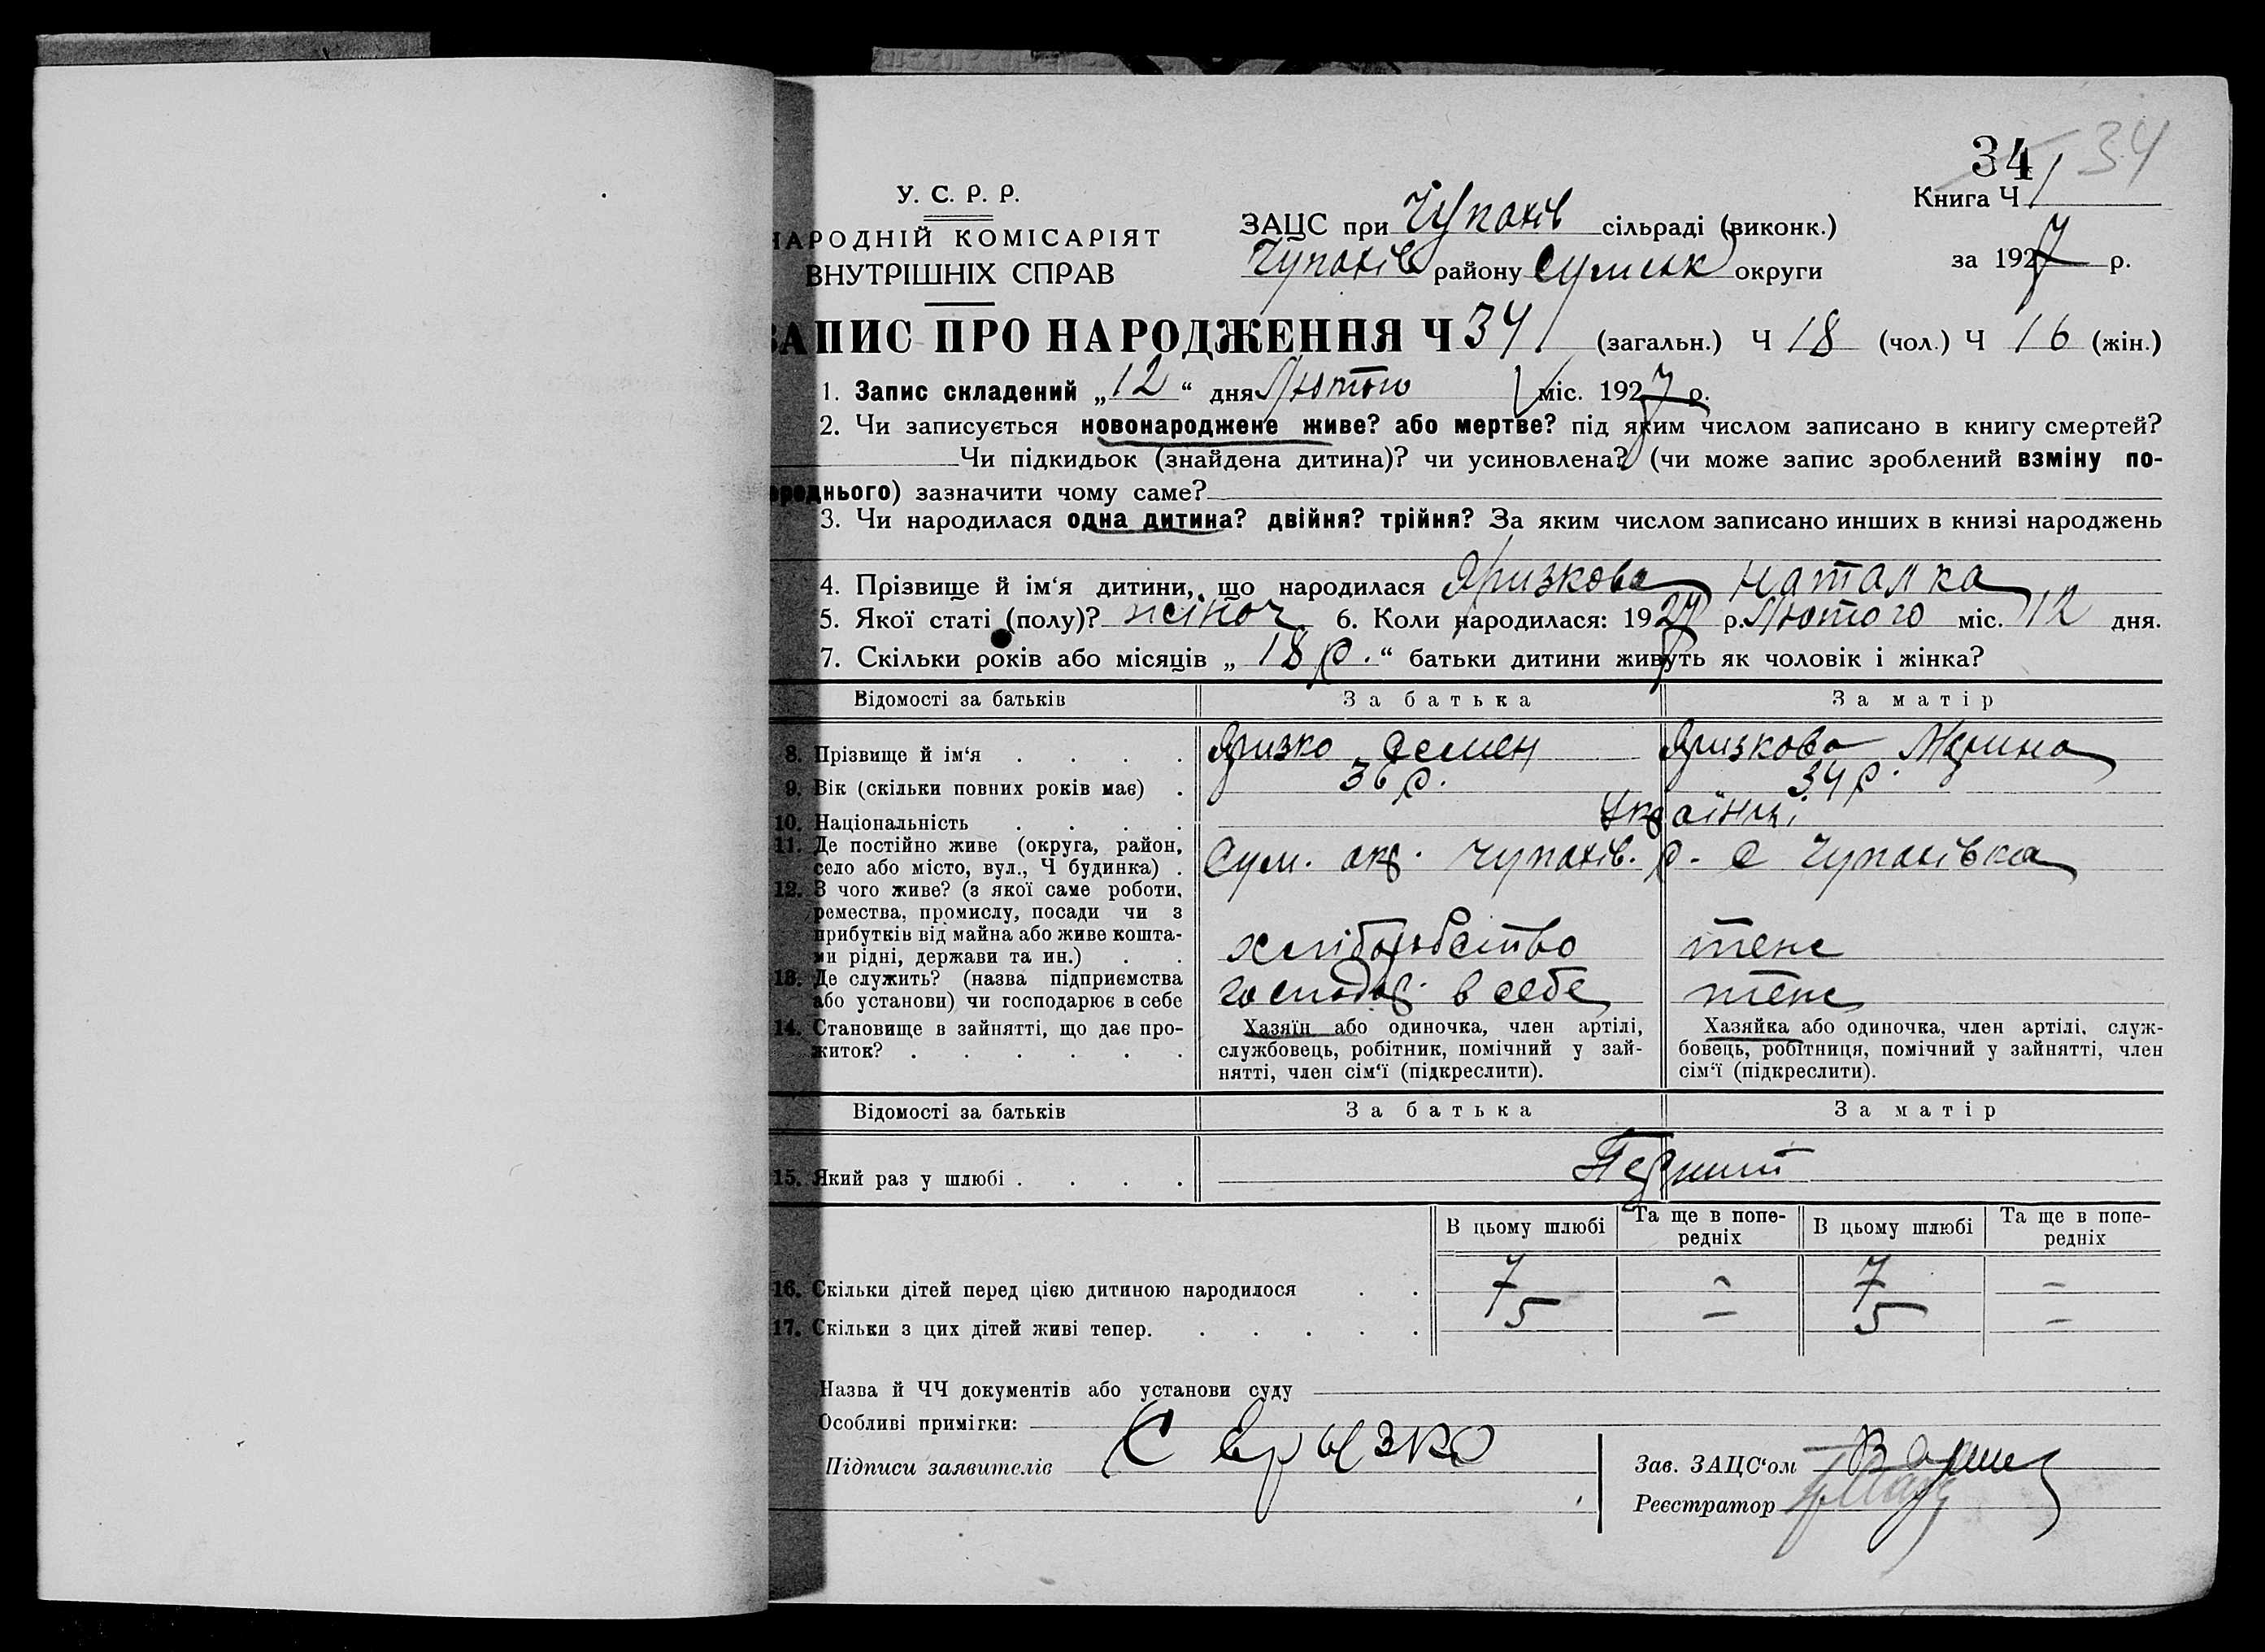 34 34
Книга Ч 1
У. С. Р. Р.
НАРОДНІЙ КОМІСАРІЯТ
ВНУТРІШНІХ СПРАВ
ЗАЦС при Чупахів сільраді (виконк.)
Чупахів району Сумськ округи
за 1927 р.
ЗАПИС ПРО НАРОДЖЕННЯ Ч 34 (загальн.) Ч 18 (чол.) Ч 16 (жін.)
1. Запис складений „12“ дня Лютого міс. 1927 р.
2. Чи записується новонароджене живе? або мертве? під яким числом записано в книгу смертей?
Чи підкидьок (знайдена дитина)? чи усиновлена? (чи може запис зроблений взміну по-
ереднього) зазначити чому саме?
3. Чи народилася одна дитина? двійня? трійня? За яким числом записано инших в книзі народжень
4. Прізвище й ім‘я дитини, що народилася Яризкова Наталка
5. Якої статі (полу)? жіноч 6. Коли народилася: 1927 р. Лютого міс. 12 дня.
7. Скільки років або місяців „18 р.“ батьки дитини живуть як чоловік і жінка?
Відомості за батьків За батька За матір
8. Прізвище й ім‘я . . . . Яризко Семен Яризкова Марина
9. Вік (скільки повних років має) . 36 р. 34 р.
10. Національність . . . . Українці
11. Де постійно живе (округа, район,
село або місто, вул., Ч будинка) . Сум. окр. Чупахів. р. с Чупахівка
12. З чого живе? (з якої саме роботи,
ремества, промислу, посади чи з
прибутків від майна або живе кошта-
ми рідні, держави та ин.) . . хліборобство теж
13. Де служить? (назва підприємства
або установи) чи господарює в себе господар. в себе теж
14. Становище в зайнятті, що дає про-
житок? . . . . . .
Хазяїн або одиночка, член артілі,
службовець, робітник, помічний у зай-
нятті, член сім‘ї (підкреслити).
Хазяйка або одиночка, член артілі, служ-
бовець, робітниця, помічний у зайнятті, член
сім‘ї (підкреслити).
Відомості за батьків За батька За матір
15. Який раз у шлюбі . . . . Перший
В цьому шлюбі Та ще в попе-
редніх В цьому шлюбі Та ще в попе-
редніх
16. Скільки дітей перед цією дитиною народилося . . 7 - 7 -
17. Скільки з цих дітей живі тепер. . . . . . 5 - 5 -
Назва й ЧЧ документів або установи суду
Особливі примітки:
Підписи заявителів С Ерызко
Зав. ЗАЦС‘ом
Реєстратор